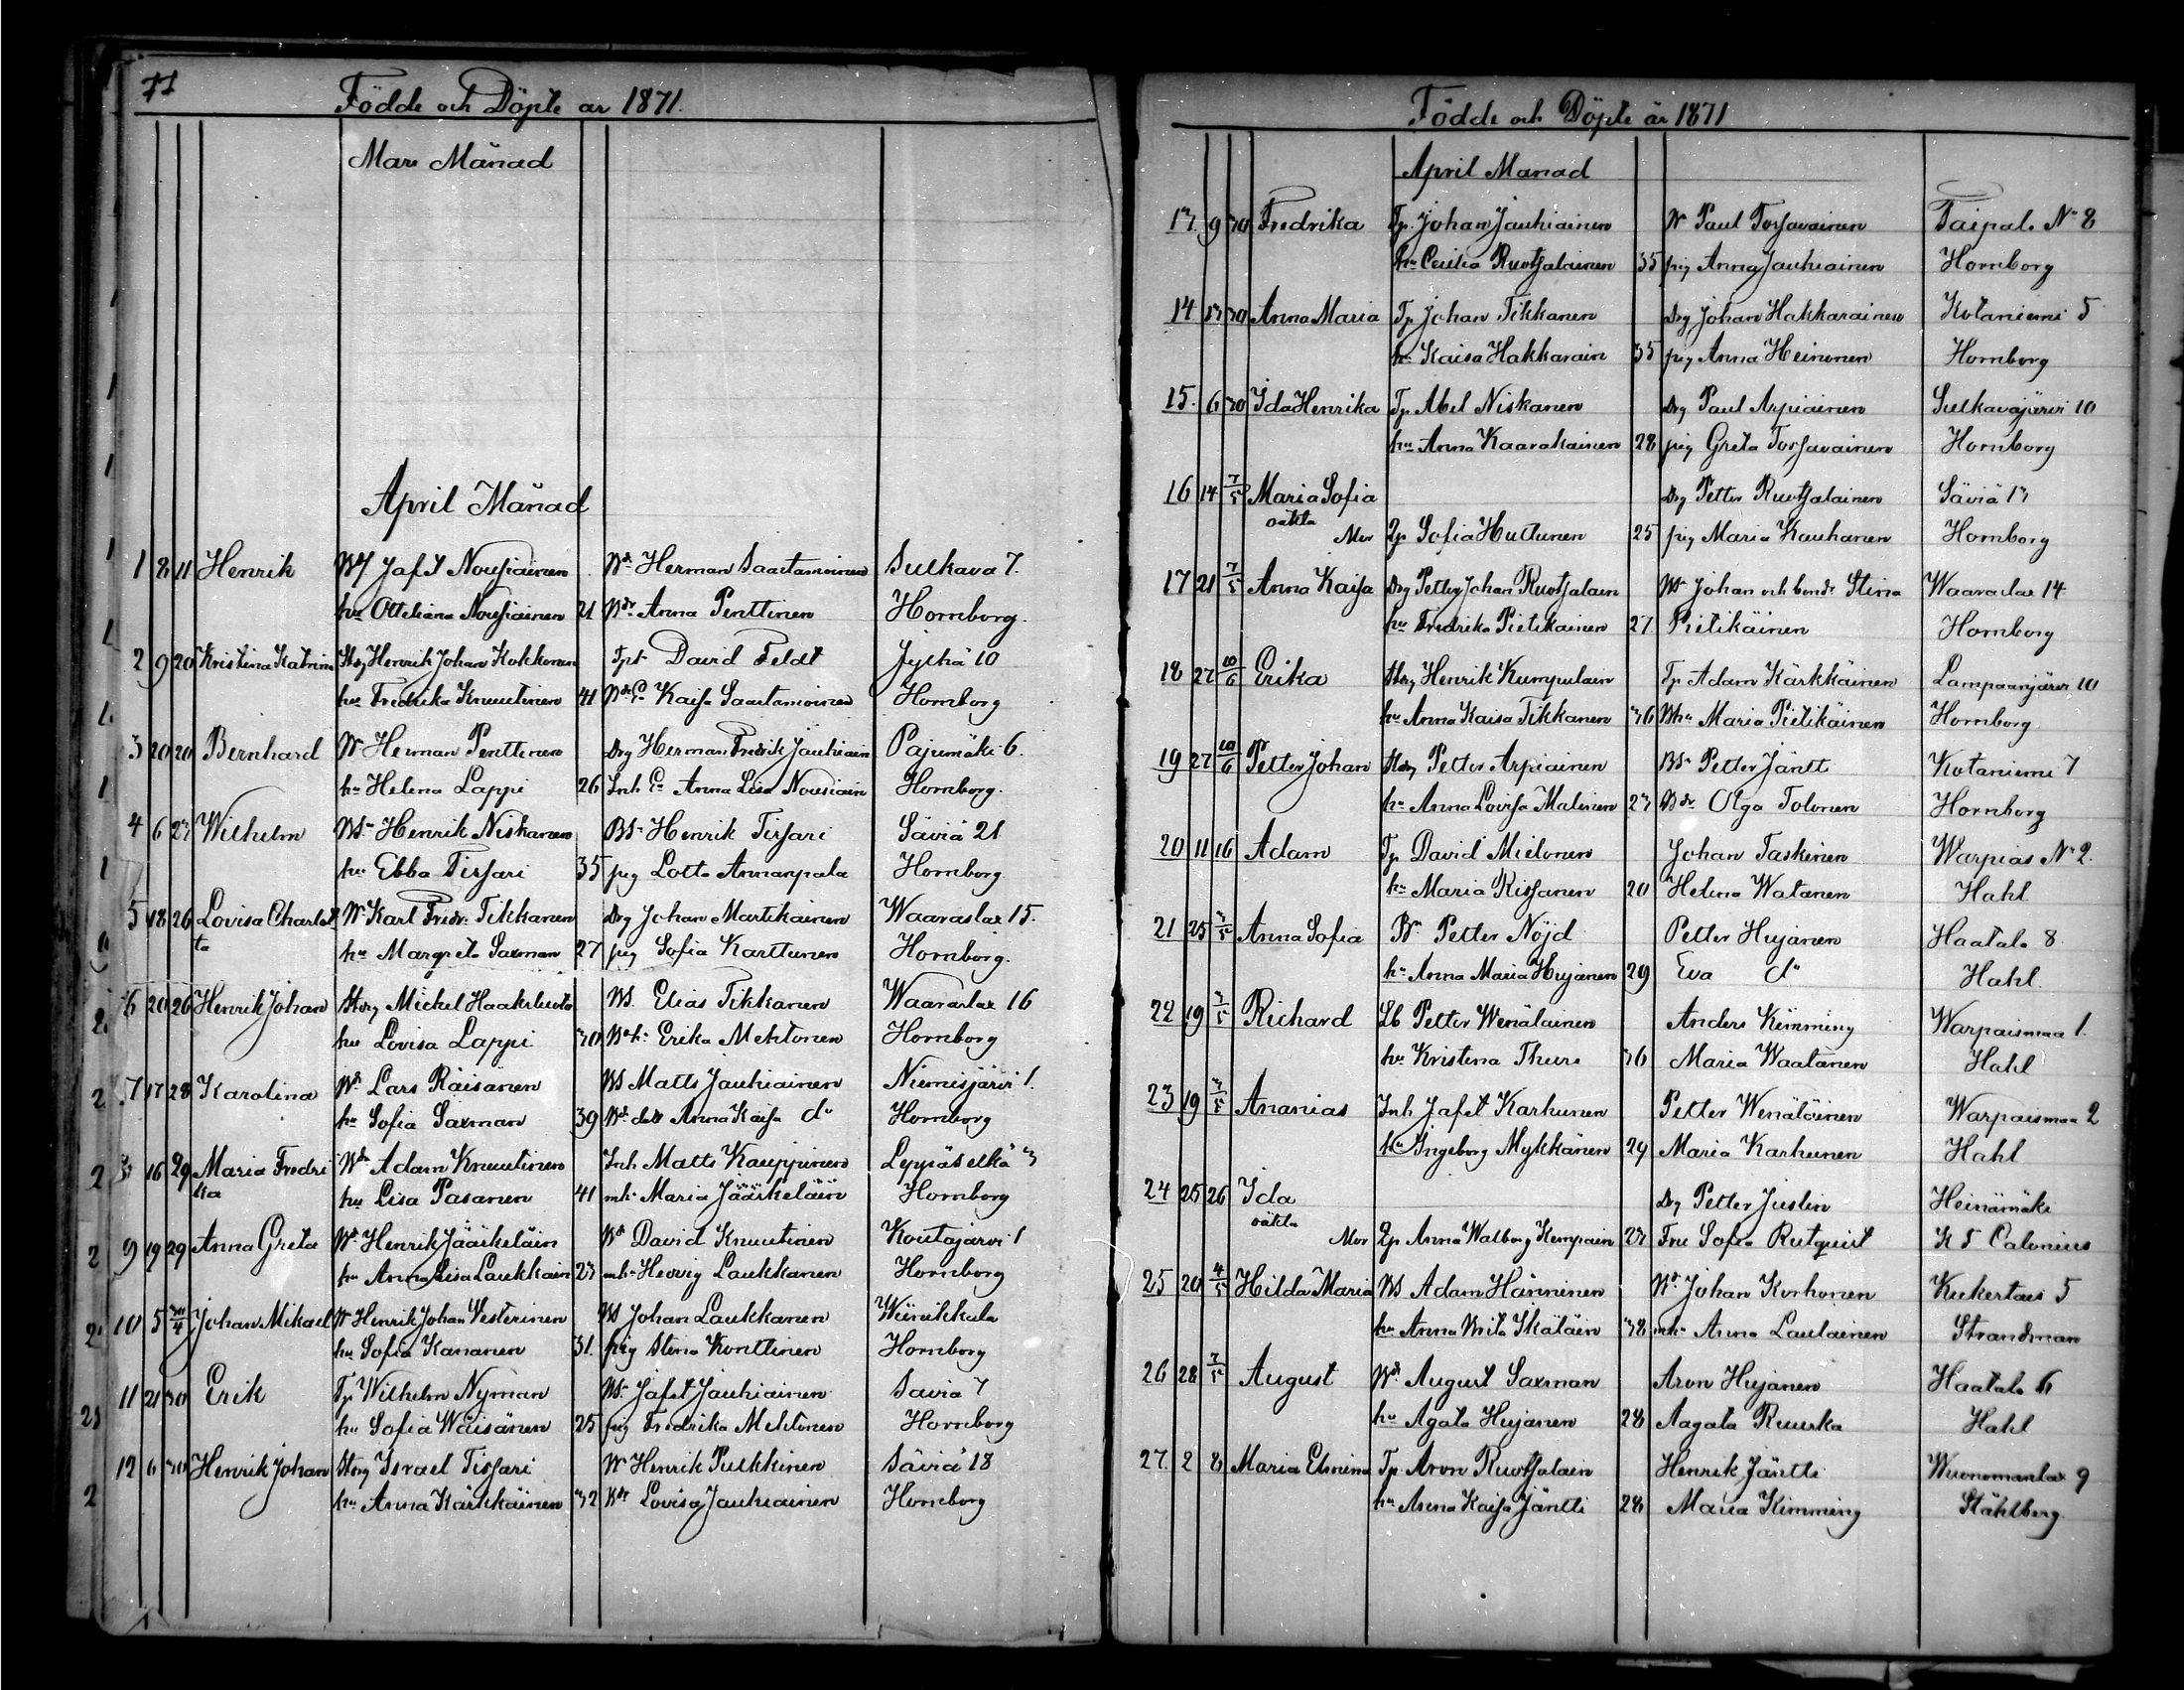 71
Födde och Döpte år 1871.
Mars Månad
April Månad
1 8 11 Henrik Jafet Nousiainen Herman Saastamoinen Sulkava 7.
hu Otteliana Nousiainen 21 Anna Penttinen Hornborg.
2 9 20 Kristina Katrin Henrik Johan Kokkonen David Feldt Jylhä 10
hu Fredrika Knuutinen 41 Kaisa Saastamoinen Hornborg
3 20 20 Bernhard Herman Penttinen Drg Herman Fredrik Jauhiain Pajumäki 6.
hu Helena Lappi 26 Inh Anna Lisa Nousiain Hornborg.
4 6 23 Wilhelm Henrik Niskanen Henrik Tissari Säviä 21
hu Ebba Tissari 35 pig Lotta Annanpala Hornborg
5 18 26 Lovisa Charlot Karl Fredr. Tikkanen Drg Johan Martikainen Waaraslax 15.
ta hu Margreta Saxman 27 pig Sofia Karttunen Hornborg.
6 20 26 Henrik Johan Michel Haaksluoto Elias Tikkanen Waaraslax 16
hu Lovisa Lappi 30 Erika Mehtonen Hornborg
7 17 28 Karolina Lars Räisänen Matts Jauhiainen Niemisjärvi 1.
hu Sofia Saxman 39 Anna Kaisa do Hornborg
16 29 Maria Fredri Adam Knuutinen Inh Matts Kauppinen Leppäselkä 3
ka hu Lisa Pasanen 41 Maria Jääskeläin Hornborg
9 19 29 Anna Greta Henrik Jääskeläin David Knuutinen Koutajärvi 1
hu Anna Lisa Laukkain 23 Hedvig Laukkanen Hornborg
10 5 30/4 Johan Mikael Henrik Johan Vesterinen Johan Laukkanen Wiinikkala
hu Sofia Kananen 31. pig Stina Konttinen Hornborg
11 21 30 Erik Tp Wilhelm Nyman Jafet Jauhiainen Savia 7
hu Sofia Wäisänen 25 pig Fredrika Mehtonen Hornborg
12 6 30 Henrik Johan Israel Tissari Henrik Pulkkinen Säviä 18
hu Anna Kärkkäinen 32 Lovisa Jauhiainen Hornborg
Födde och Döpte år 1871
April Manad
13. 9 30 Fredrika Tp. Johan Jauhiainen Paul Torsavainen Taipale No 8
hu Cecilia Ruotsalainen 35 pig Anna Jauhiainen Hornborg
14 13 30 Anna Maria Tp Johan Tikkanen Drg Johan Hakkarainen Kotaniemi 5
hu Kaisa Hakkarain 35 pig Anna Heinonen Hornborg
15. 6 30 Ida Henrika Tp Abel Niskanen Drg Paul Arpiainen Sulkavajärvi 10
hu Anna Kaarakainen 28 pig Greta Torsavainen Hornborg
16 14 7/5 Maria Sofia Drg Petter Ruotsalainen Säviä 13
oäkta Mor Sofia Huttunen 25 pig Maria Kauhanen Hornborg
17 21 7/5 Anna Kaisa Drg Petter Johan Ruotsalain Johan och bondr Stina Waaraslax 14
hu Fredrika Pietikainen 27 Pietikäinen Hornborg
18 27 10/6 Erika Henrik Kumpulain Tp Adam Kärkkäinen Lampaanjärvi 10
hu Anna Kaisa Tikkanen 36 Maria Pietikäinen Hornborg
19 27 10/6 Petter Johan Petter Arpiainen Petter Jäntti Kotaniemi 7
hu Anna Lovisa Malinen 23 Olga Tolonen Hornborg
20 11 16 Adam Tp David Mielonen Johan Taskinen Warpias No 2.
hu Maria Rissanen 20 Helena Watanen Hahl
21 25 3/5 Anna Sofia Petter Nöjd Petter Hujanen Haatala 8
hu Anna Maria Hujanen 29 Eva do Hahl.
22 19 3/5 Richard Petter Wenäläinen Anders Kimming Warpaismaa 1.
hu Kristina Thure 36 Maria Waatanen Hahl
23 19 3/5 Ananias Inh Jafet Karhunen Petter Wenäläinen Warpaismaa 2
hu Ingeborg Mykkänen 29 Maria Karhunen Hahl
24 25 26 Ida Drg Petter Juslin Heinämäki
oäkta Mor Anna Walborg Kempain 23 Fru Sofia Rutquist K T Calonius
25 20 4/5 Hilda Maria Adam Hänninen Johan Korhonen Kukertaus 5
hu Anna Brita Ikäläin 38 Anna Laulainen Strandman
26 28 7/5 August August Saxman Aron Hujanen Haatala 6
hu Agata Hujanen 28 Aagata Ruuska Hahl
27. 2 8 Maria Elmina Tp Aron Ruotsalain Henrik Jäntti Wuonamanlax 9
hu Anna Kaisa Jäntti 28 Maria Kimming Ståhlberg